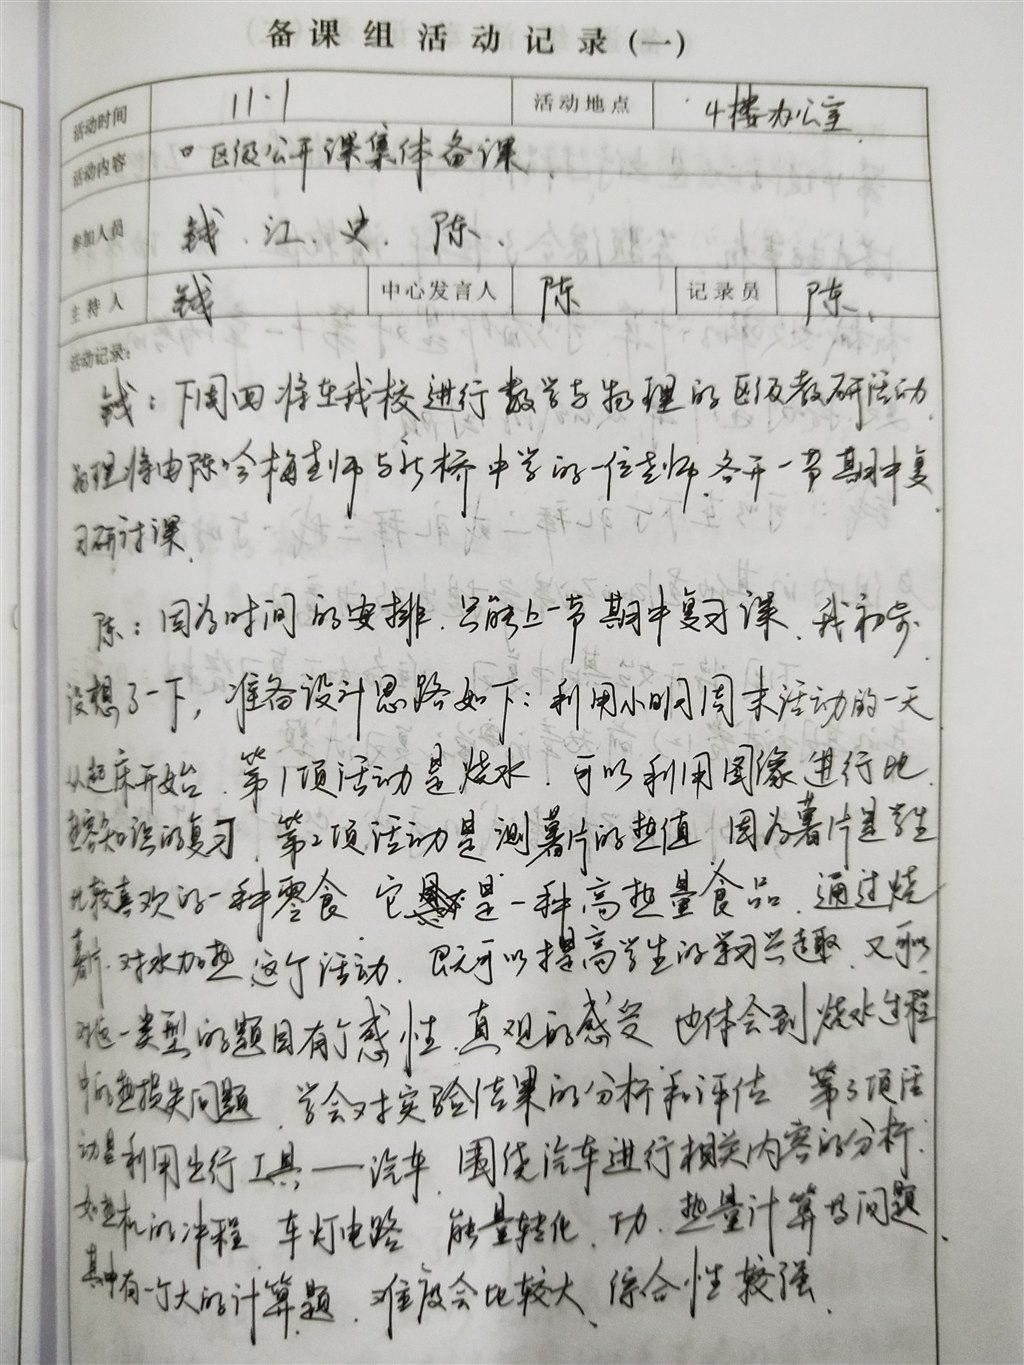 备课组活动记录(一)
活动时间 11.1 活动地点 4楼办公室
活动内容 区级公开课集体备课
参加人员 钱、江、史、陈、
主持人 钱 中心发言人 陈 记录员 陈
活动记录:
钱:下周四将在我校进行数学与物理的区级教研活动
物理将由陈 梅老师与新桥中学的一位老师各开一节期中复
习研讨课
陈:因为时间的安排.只能上一节期中复习课、我初步
设想了一下,准备设计思路如下:利用小明周末活动的一天
从起床开始.第1项活动是烧水.可以利用图像进行比
热容知识的复习.第2项活动是测薯片的热值 因为薯片是学生
比较喜欢的一种零食 它是一种高热量食品.通过烧
薯片.对水加热这个活动.既可以提高学生的学习兴趣.又可以
对这一类型的题目有个感性.直观的感受 也体会到烧水过程
中的热损失问题 学会对实验结果的分析和评估 第3项活
动是利用出行工具——汽车.围绕汽车进行相关内容的分析.
如热机的冲程 车灯电路 能量转化、功、热量计算等问题、
其中有一个大的计算题.难度会比较大、综合性较强.